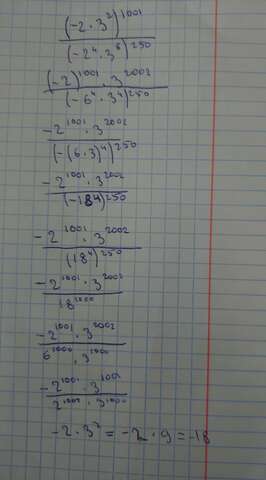 (-2·3²)¹⁰⁰¹ / (-2⁴·3⁸)²⁵⁰
(-2)¹⁰⁰¹·3²⁰⁰² / (-6⁴·3⁴)²⁵⁰
-2¹⁰⁰¹·3²⁰⁰² / (-(6·3)⁴)²⁵⁰
-2¹⁰⁰¹·3²⁰⁰² / (-18⁴)²⁵⁰
-2¹⁰⁰¹·3²⁰⁰² / (18⁴)²⁵⁰
-2¹⁰⁰¹·3²⁰⁰² / 18¹⁰⁰⁰
-2¹⁰⁰¹·3²⁰⁰² / 6¹⁰⁰⁰·3¹⁰⁰⁰
-2¹⁰⁰¹·3¹⁰⁰² / 2¹⁰⁰⁰·3¹⁰⁰⁰
-2·3² = -2·9 = -18